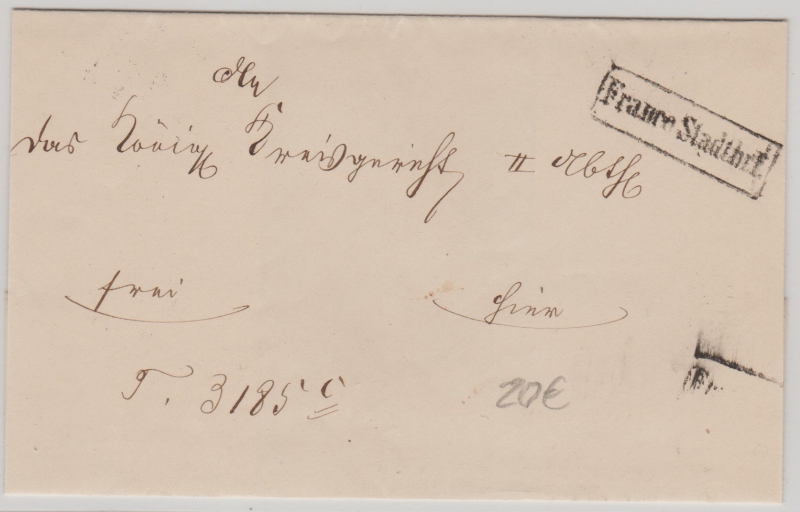 An
Franco Stadtbrf.
das Königl Kreisgericht II Abth
frei hier
T. 3185 c
20€
Fr